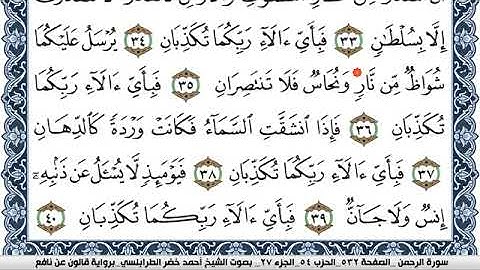 إِلَّا بِسُلْطَٰنٍ ٣٣ فَبِأَيِّ ءَالَآءِ رَبِّكُمَا تُكَذِّبَانِ ٣٤ يُرْسَلُ عَلَيْكُمَا
شُوَاظٌ مِّن نَّارٍ وَنُحَاسٌ فَلَا تَنتَصِرَانِ ٣٥ فَبِأَيِّ ءَالَآءِ رَبِّكُمَا
تُكَذِّبَانِ ٣٦ فَإِذَا انشَقَّتِ السَّمَآءُ فَكَانَتْ وَرْدَةً كَالدِّهَانِ
٣٧ فَبِأَيِّ ءَالَآءِ رَبِّكُمَا تُكَذِّبَانِ ٣٨ فَيَوْمَئِذٍ لَّا يُسْـَٔلُ عَن ذَنۢبِهِۦ
إِنسٌ وَلَا جَآنٌّ ٣٩ فَبِأَيِّ ءَالَآءِ رَبِّكُمَا تُكَذِّبَانِ ٤٠
سورة الرحمن _الصفحة ٥٣٢_الحزب ٥٤_الجزء ٢٧_ بصوت الشيخ أحمد خضر الطرابلسي_برواية قالون عن نافع